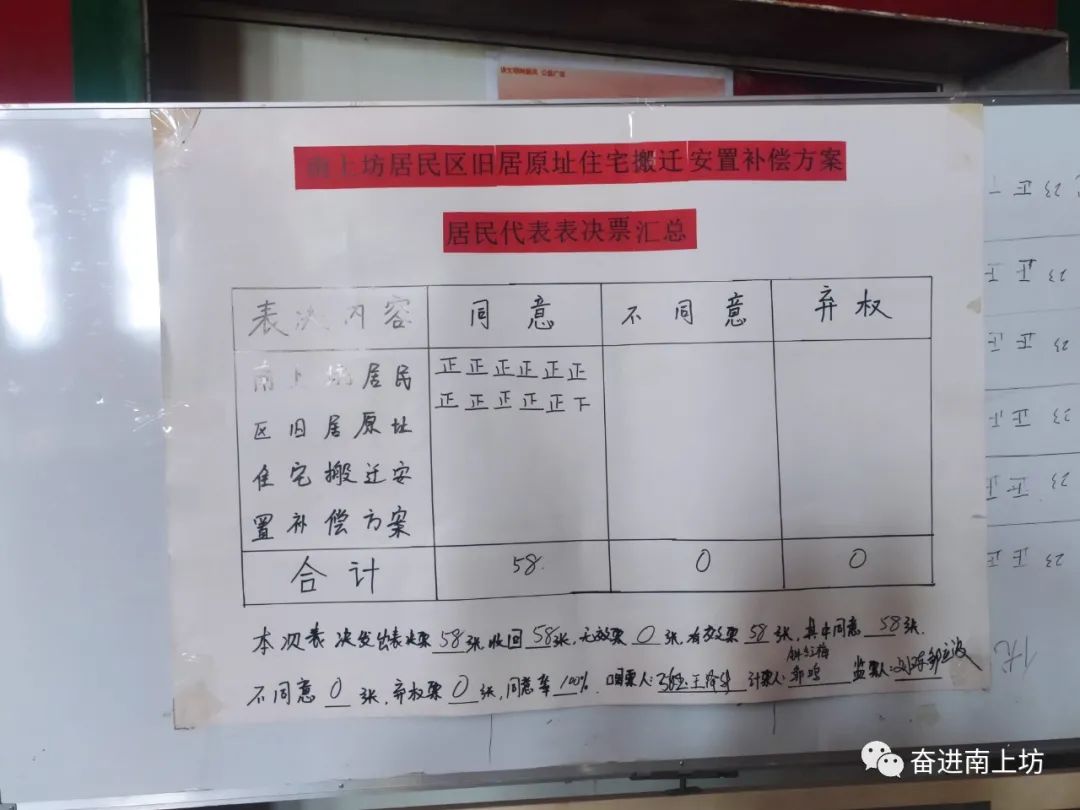 南上坊居民区旧居原址住宅搬迁安置补偿方案
居民代表表决票汇总
表决内容 同意 不同意 弃权
南上坊居民 正正正正正正
区旧居原址 正正正正正下
住宅搬迁安
置补偿方案
合计 58 0 0
本次表决发出表决票58张,收回58张,无效票0张,有效票58张,其中同意58张.
不同意0张,弃权票0张,同意率100% 唱票人: 计票人:邹鸣 监票人:
23正
23正正
23正正
23正正
23正正
23正正
优
奋进南上坊